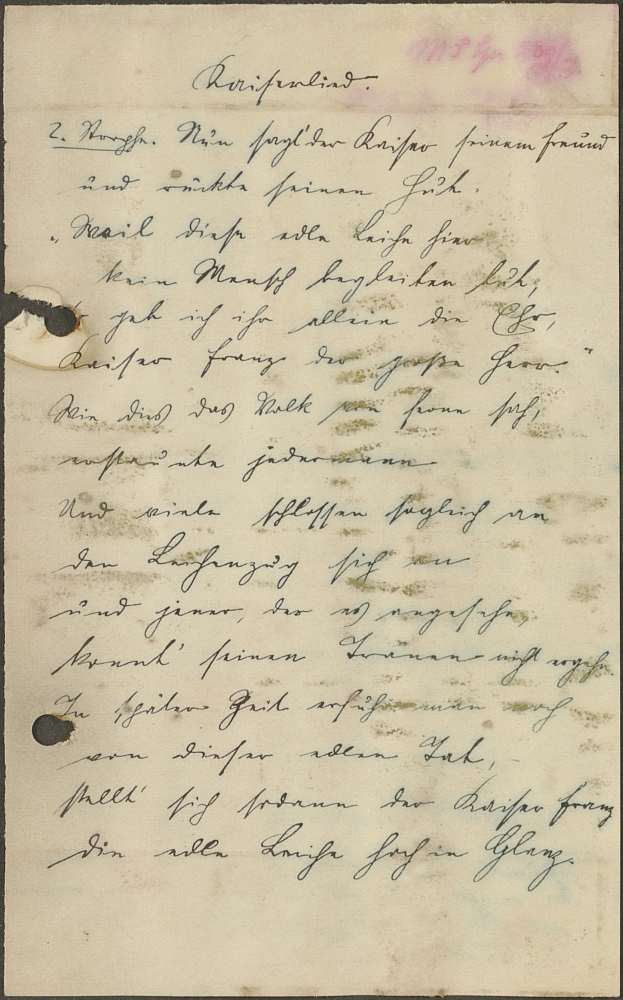 Kaiserlied.
2. Storphe. Nun sagt' der Kaiser seinem Freund
und rückte seinen Hut.
„Weil diese edle Leiche hier
kein Mensch begleiten tut,
geb ich ihr allein die Ehr,
Kaiser Franz der große Herr."
Wie dies das Volk von ferne sah,
erstaunte jedermann
Und viele schlossen sogleich an
den Leichenzug sich an
und jener, der es angesehn,
konnt' seinen Tränen nicht
In später Zeit erfuhr man noch
von dieser edlen Tat,
stellt' sich sodann der Kaiser Franz
die edle Leiche hoch in Glanz.